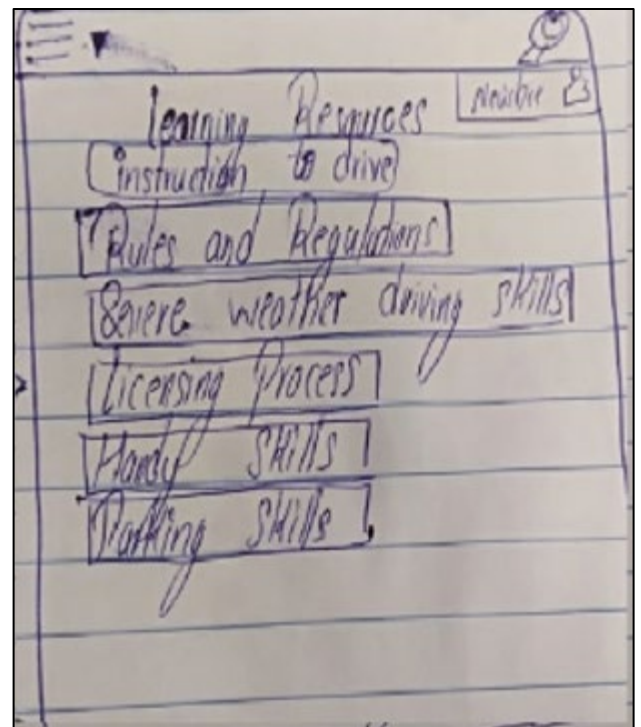 Newbie
Learning Resources
instruction to drive
Rules and Regulations
Severe weather driving skills
Licensing Process
Handy Skills
Parking Skills